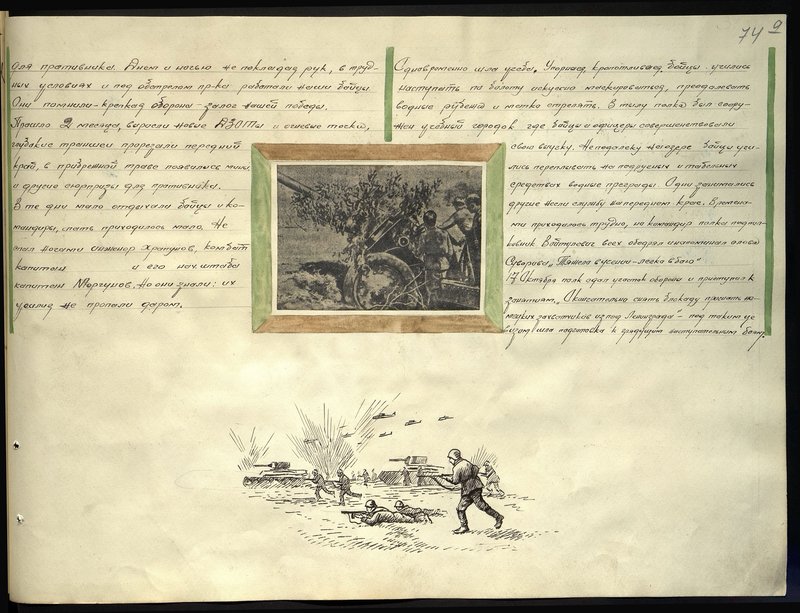 74 9
для противника. Днем и ночью не покладая рук, в труд-
ных условиях и под обстрелом пр-ка работали наши бойцы.
Они помнили-крепкая оборона-залог нашей победы.
Прошло 2 месяца, выросли новые ДЗОТы и огневые точки,
глубокие траншеи прорезали передний
край, в прибрежной траве появились мины
и другие сюрпризы для противника.
В те дни мало отдыхали бойцы и ко-
мандиры, спать приходилось мало. Не
спал ночами инженер Храпунов, комбат
капитан и его нач. штаба
капитан Моргунов. Но они знали: их
усилия не пропали даром.
Одновременно шла учеба. Упорная, кропотливая, бойцы учились
наступать по болоту искусно маскироваться, преодолевать
водные рубежи и метко стрелять. В тылу полка был соору-
жен учебный городок где бойцы и офицеры совершенствовали
свою выучку. Неподалеку на озере бойцы учи-
лись переплывать на подручных и табельных
средствах водные преграды. Одни занимались
другие несли службу на переднем крае. Времена-
ми приходилось трудно, но командир полка подпол-
ковник всех ободрял и напоминал слова
Суворова, "Тяжело в учении-легко в бою".
17 Октября полк сдал участок обороны и приступил к
занятиям. "Окончательно снять блокаду прогнать не-
мецких захватчиков из под Ленинграда"- под таким
шла подготовка к грядущим наступательным боям.